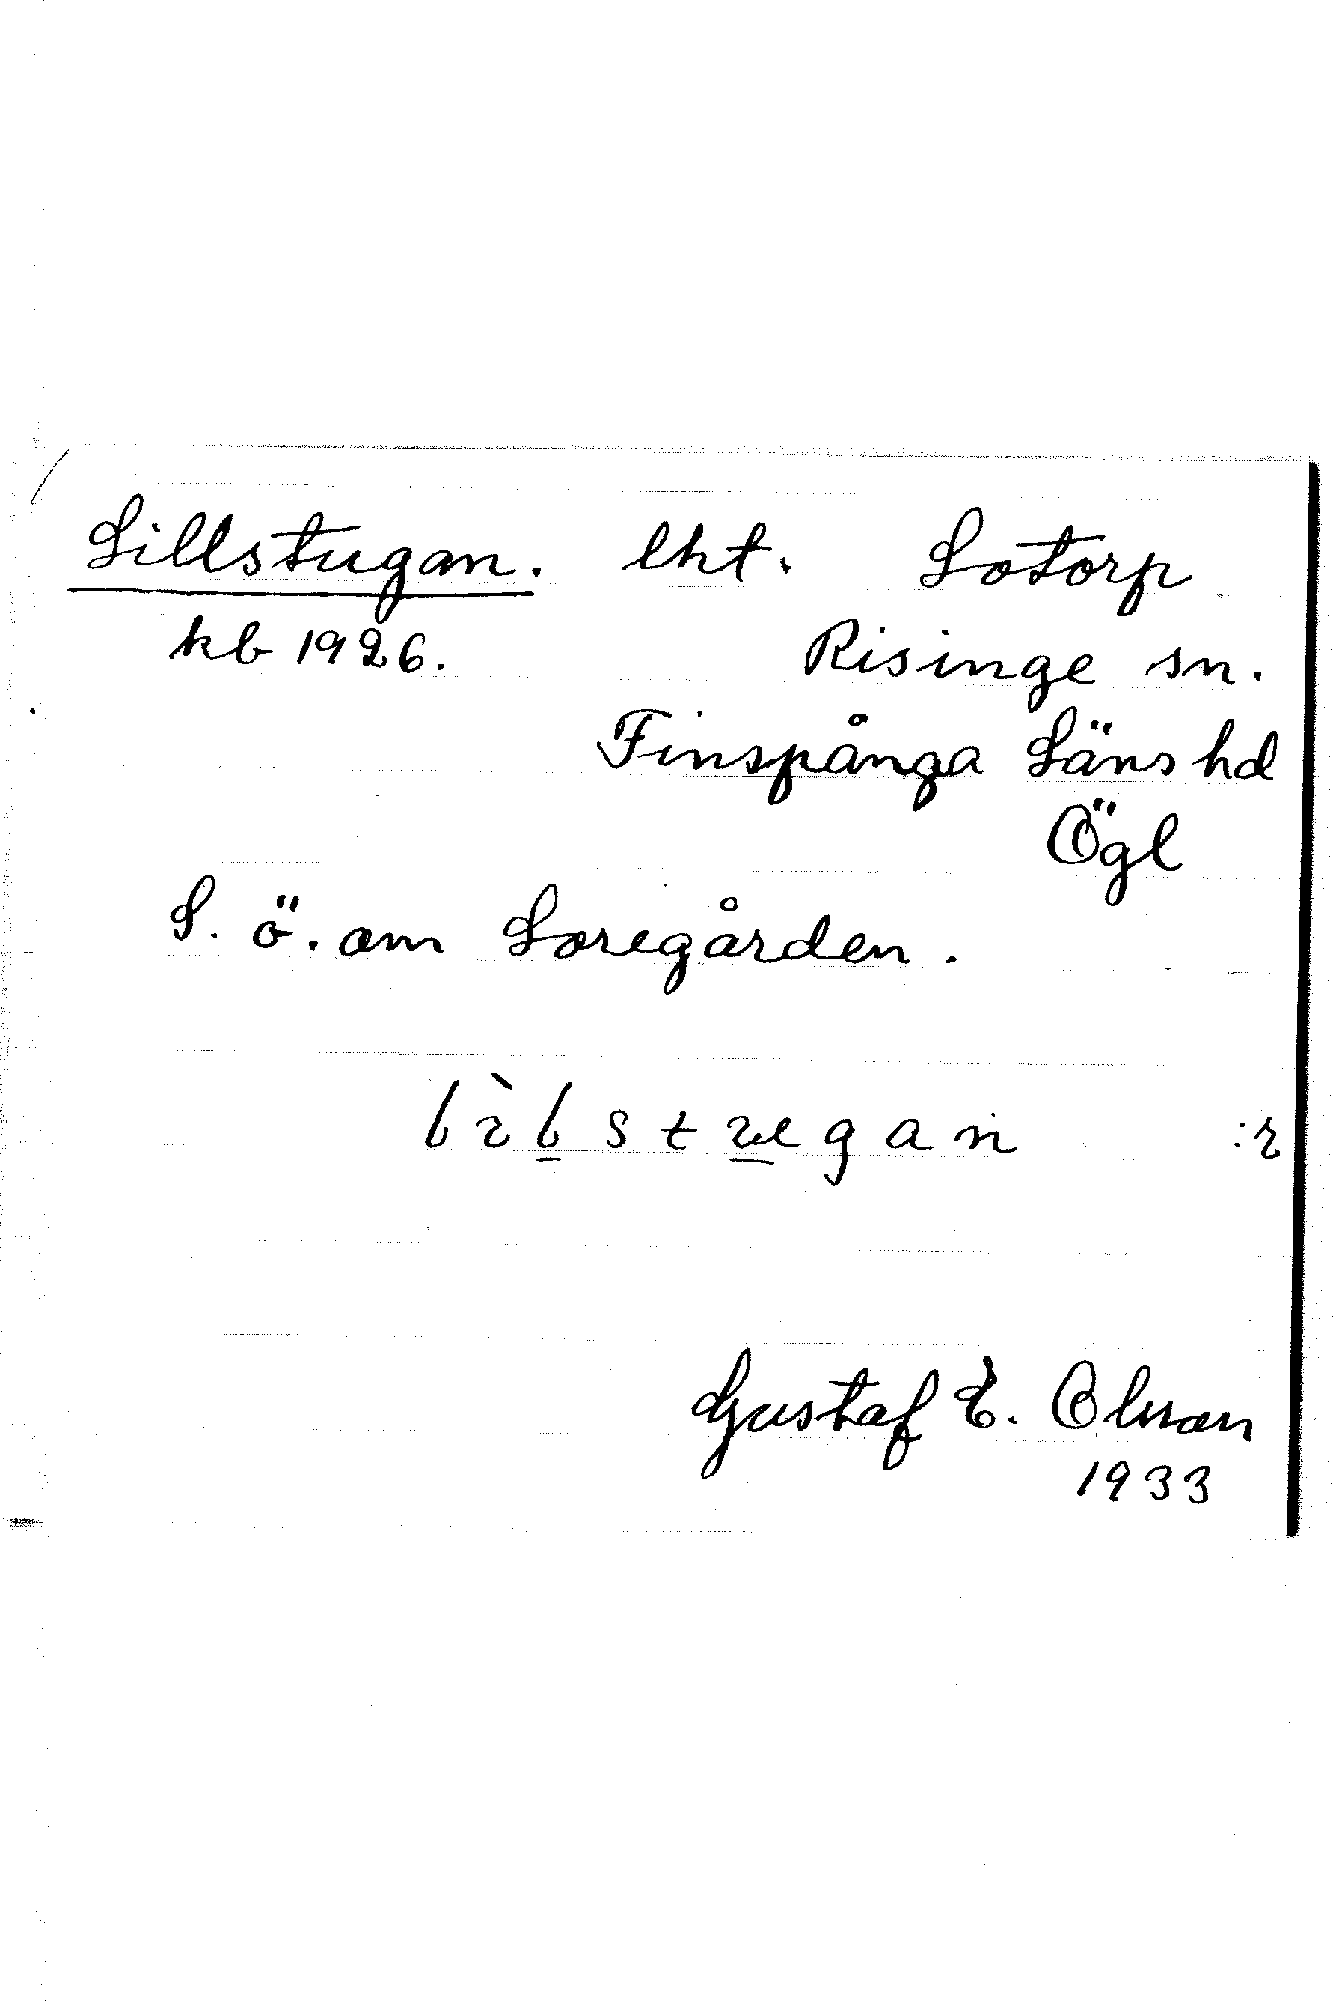 Lillstugan. lht. Lotorp
kb 1926. Risinge sn.
Finspånga Läns hd
Ögl
S. ö. om Soregården.
Gustaf E. Olsson
1933